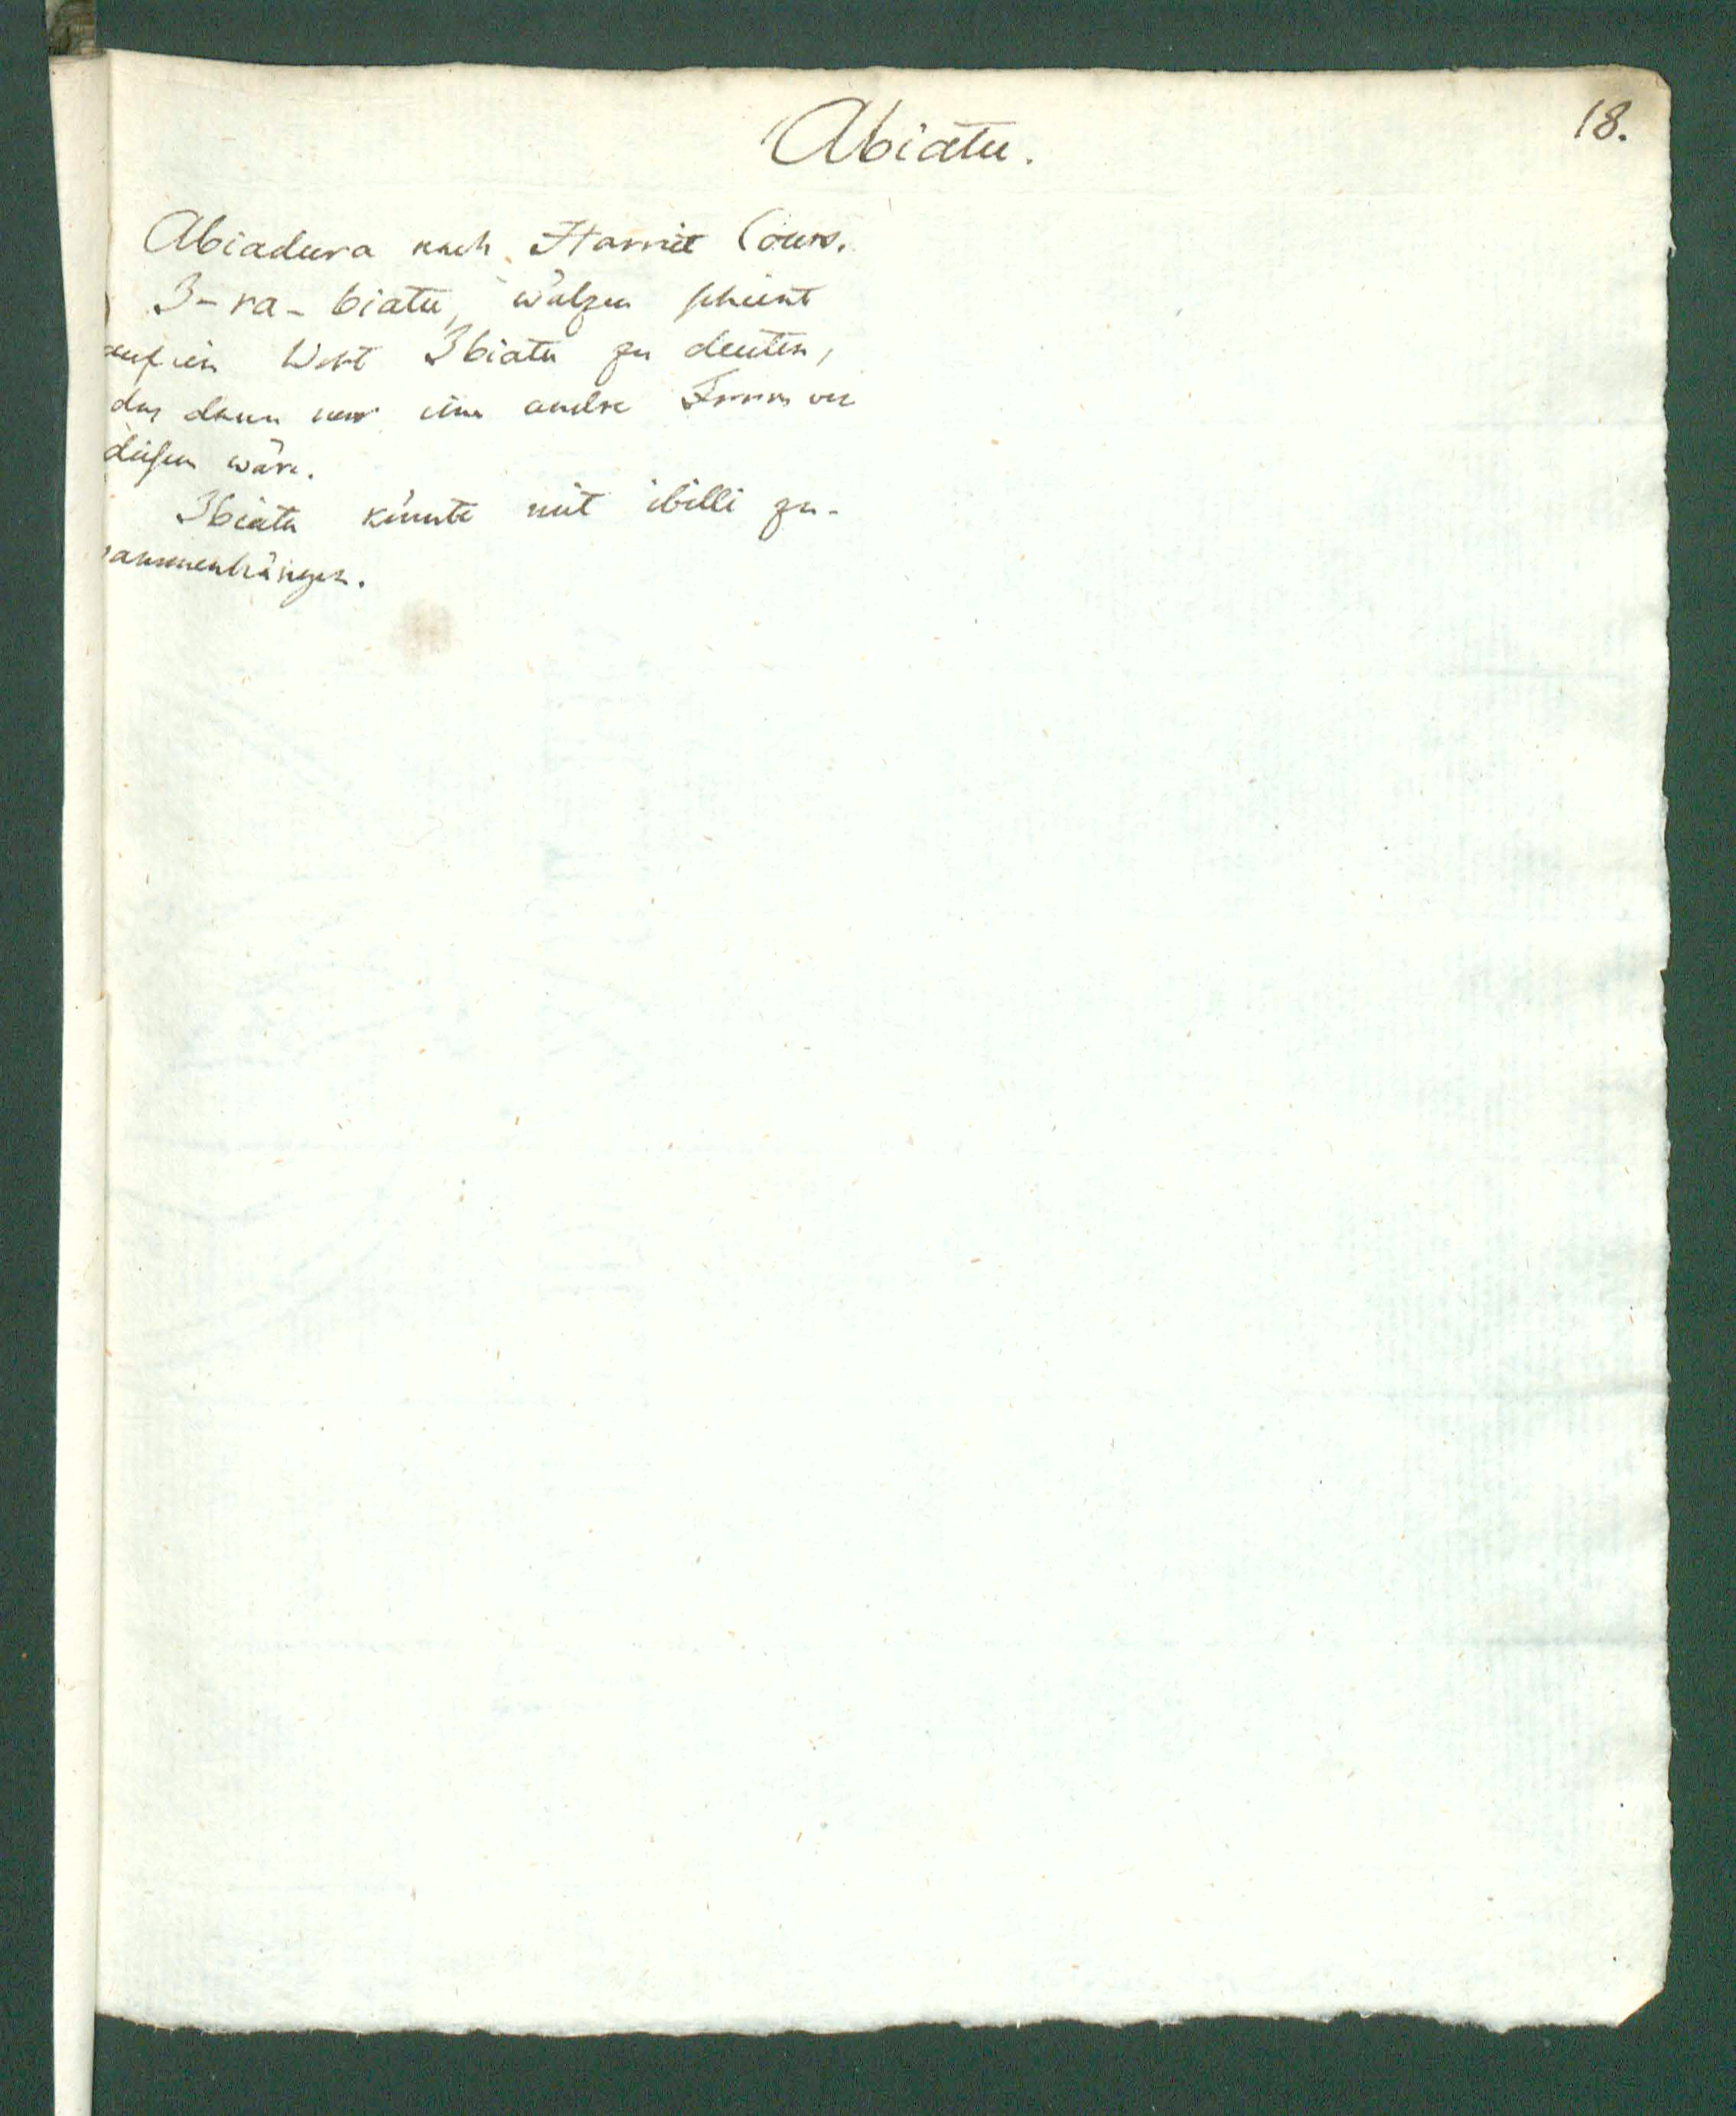 Abiatu.
18.
Abiadura nach Harriet Cours.
I-ra-biatu, wälzen scheint
auf ein Wort Ibiatu zu deuten,
das dann nur eine andre Form von
diesem wäre.
Ibiatu könnte mit ibilli zu-
sammenhängen.